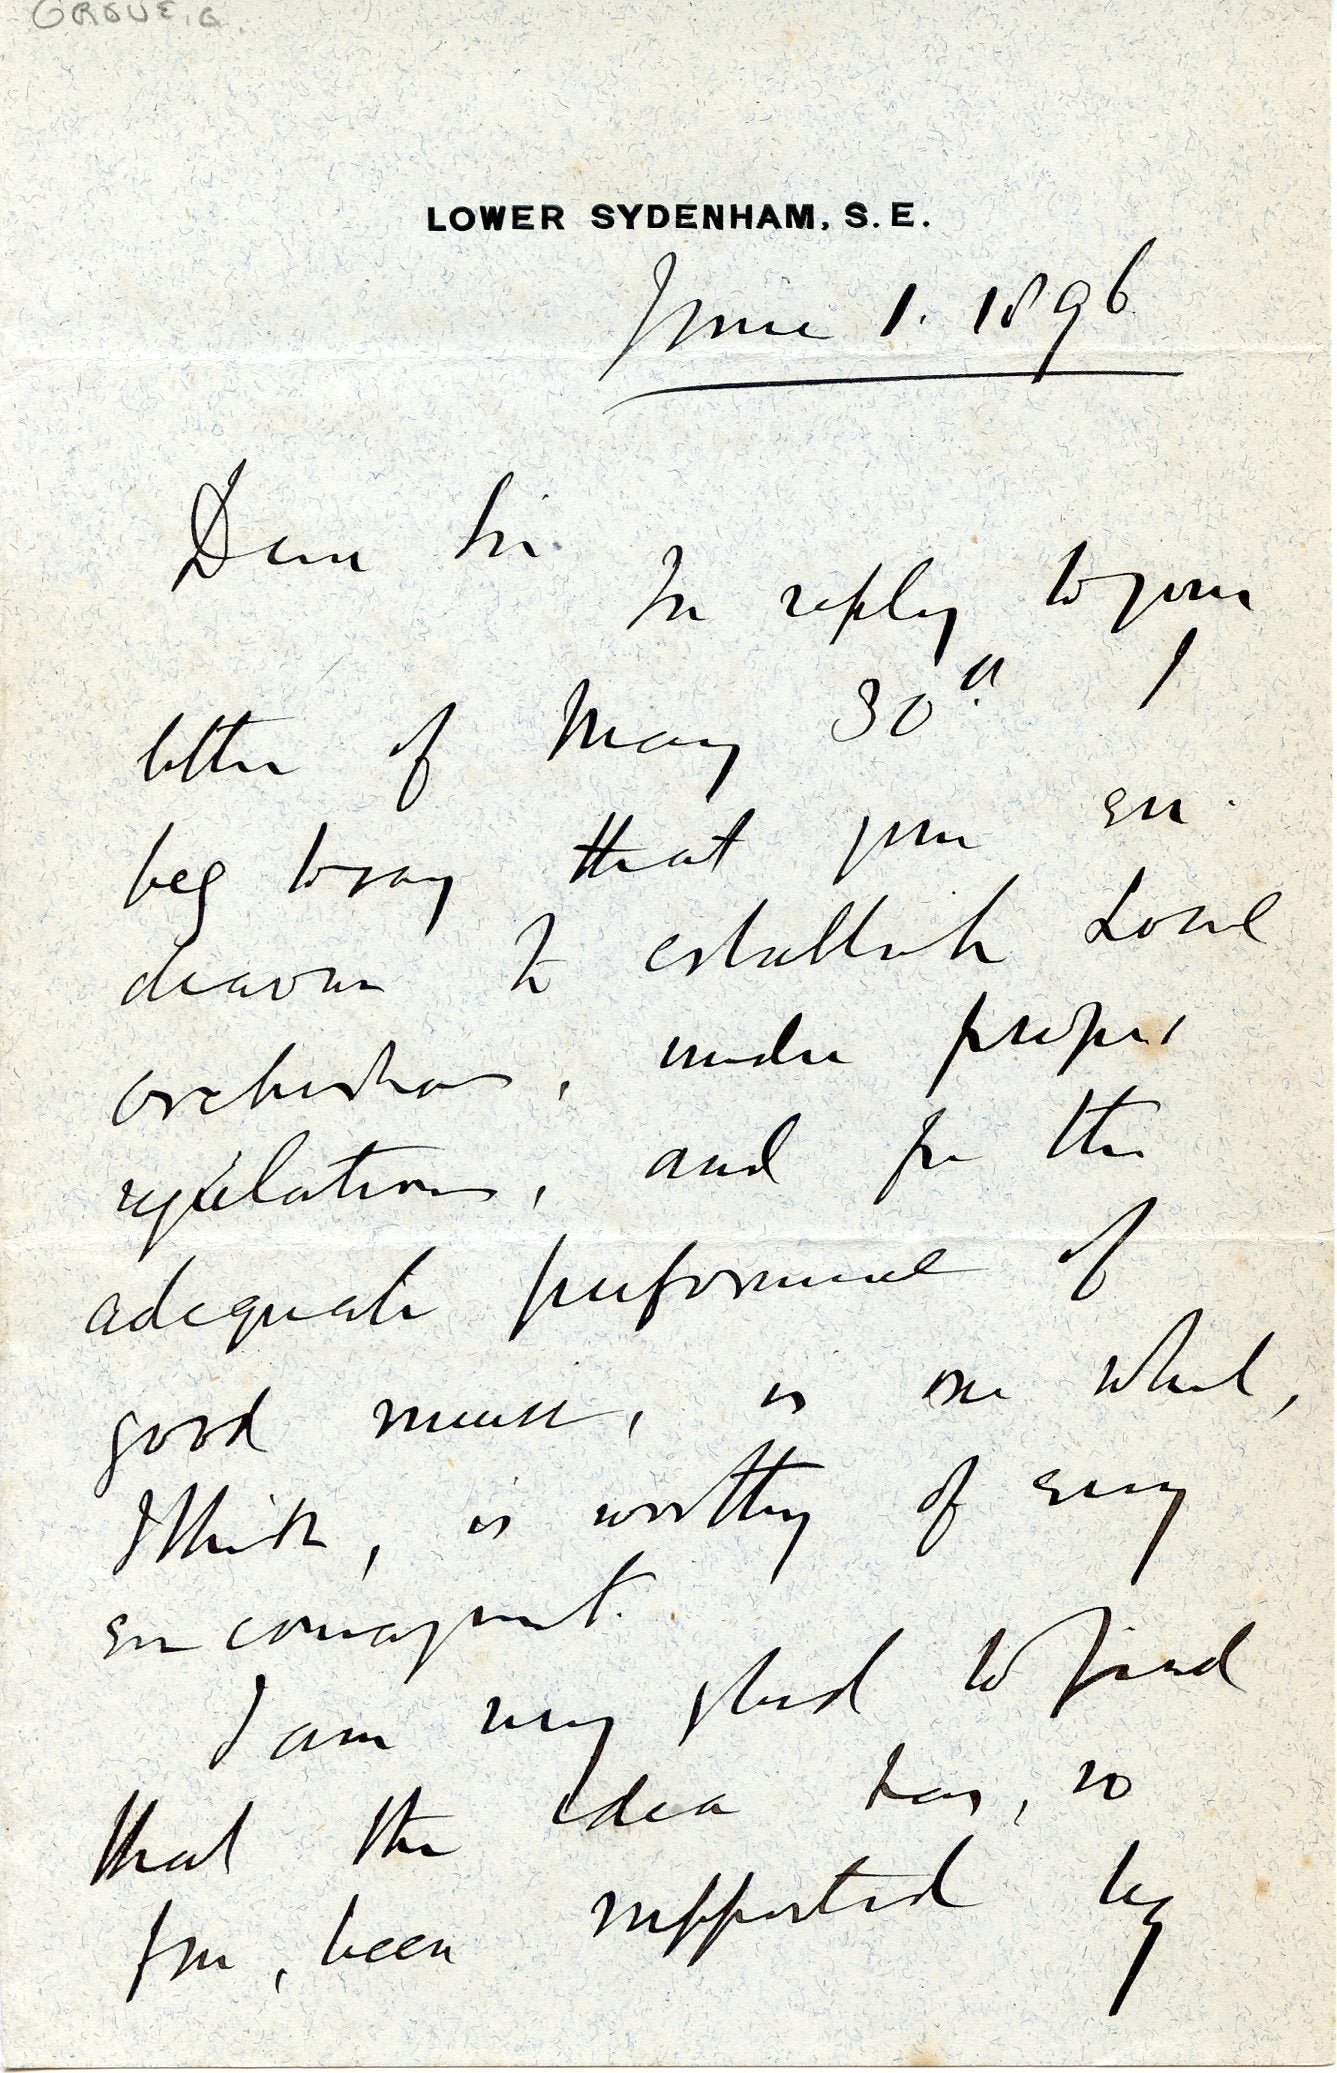 GROVE, G.
LOWER SYDENHAM, S.E.
June 1. 1896
Dear Sir.
In reply to your
letter of May 30th I
beg to say that your en-
deavour to establish Local
orchestras, under proper
regulations, and for the
adequate performance of
good music, is one which,
I think, is worthy of every
encouragement.
I am very glad to find
that the idea has, so
far, been supported by